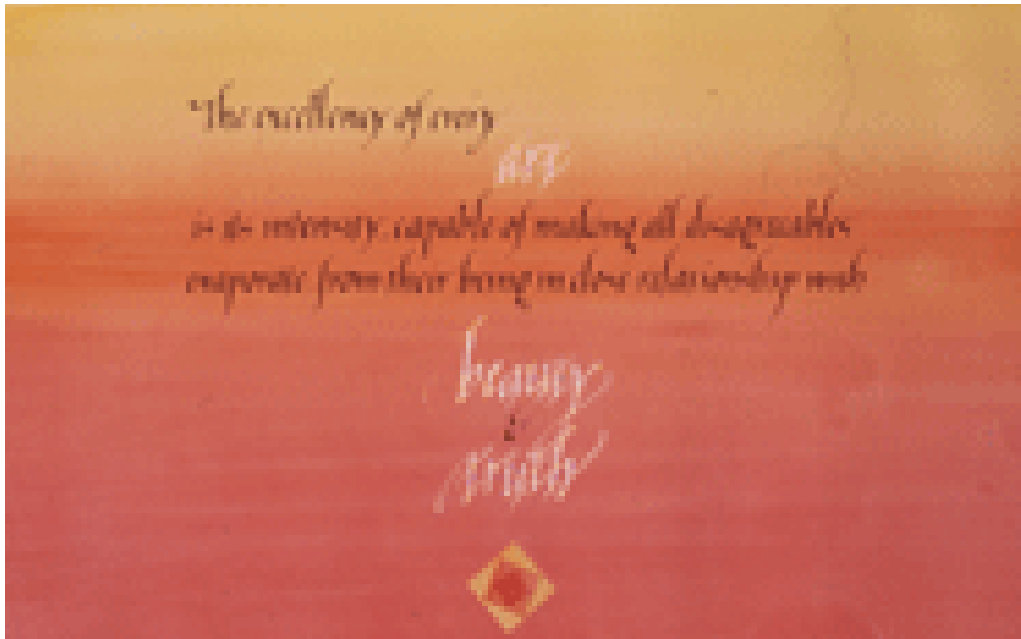 The excellency of every
art
is its intensity, capable of making all disagreeables
evaporate from their being in close relationship with
beauty
&
truth